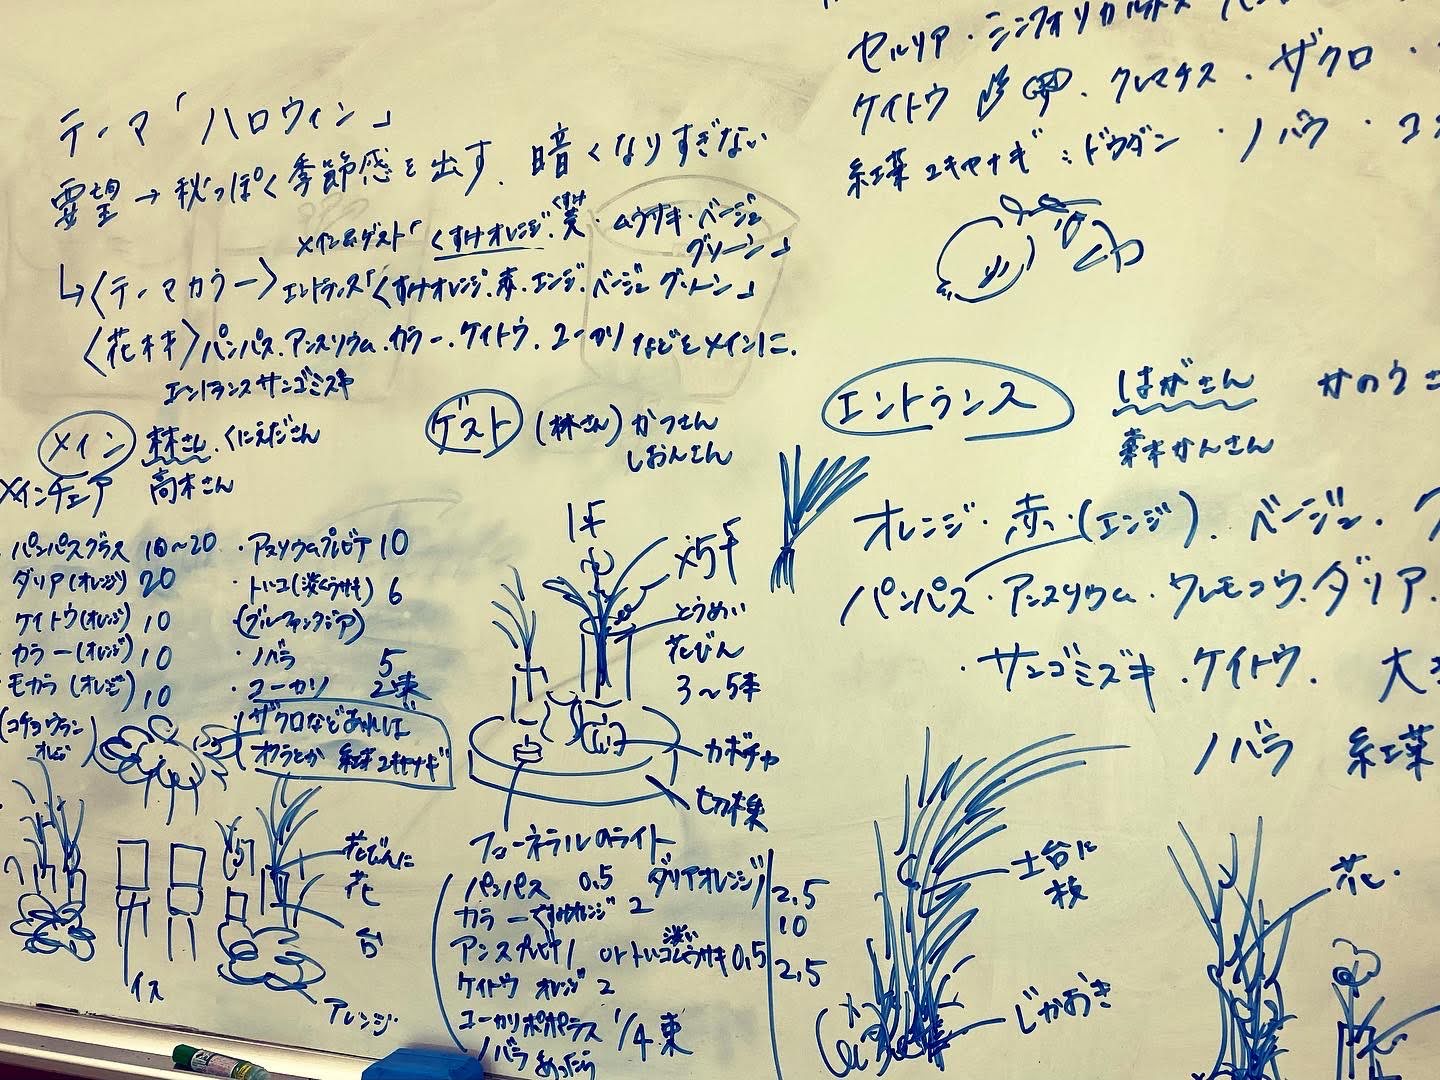 テーマ「ハロウィン」
要望→秋っぽく季節感を出す、暗くなりすぎない
メイン&ゲスト「くすみオレンジ・くすみ ・ムラサキ・ベージュ
グリーン」
↳〈テーマカラー〉エントランス「くすみオレンジ・赤・エンジ・ベージュ グリーン」
〈花材〉パンパス・アンスリウム・カラー・ケイトウ・ユーカリなどをメインに、
エントランスサンゴミズキ
メイン 林さん、くにえださん
高木さん
メインチェア
・パンパスグラス 10~20
ダリア(オレンジ) 20
ケイトウ(オレンジ) 10
カラー(オレンジ) 10
モカラ(オレンジ) 10
(コチョウラン
オレンジ)
・アンスリウムプレビア 10
・トルコ(淡ムラサキ) 6
(ブルーファンタジア)
・ノバラ 5
・ユーカリ 2束
・ザクロなどあれば
オクラとか 紅葉ユキヤナギ
花びんに
花
台
イス
アレンジ
ゲスト (林さん) かつさん
しおんさん
とうめい
花びん
3~5本
カボチャ
切株
フローネラルのライト
パンパス 0.5 ダリアオレンジ 2.5
カラーくすみオレンジ 2 10
アンスプレビア 1 orトルコ淡いムラサキ 0.5 2.5
ケイトウ オレンジ 2
ユーカリポポラス 1/4束
ノバラ あったら
セルリア・シンフォリカルポス
ケイトウ ・クレマチス・ザクロ・
紅葉ユキヤナギ ドウダン・ノバラ・コ
エントランス はがさん かのうさ
かんさん
オレンジ・赤・(エンジ)・ベージュ・グ
パンパス・アンスリウム・ワレモコウ・ダリア・
・サンゴミズキ・ケイトウ・ 大
ノバラ 紅葉
土台に
枝
じかおき
花・